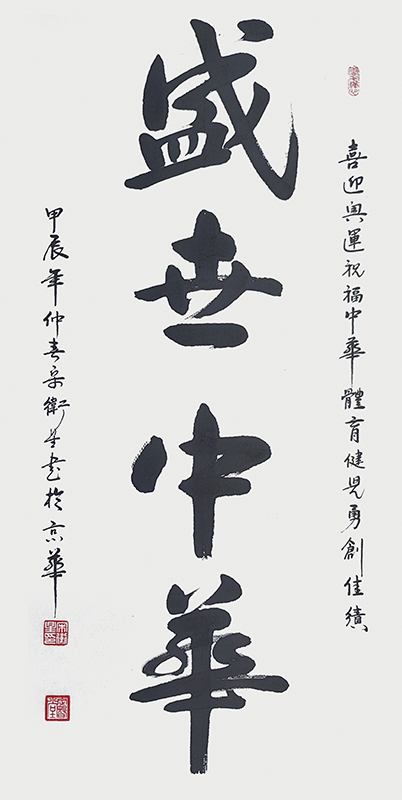 喜迎奥運祝福中華體育健児勇創佳績
盛世中華
甲辰年仲春宋衛平書於京華